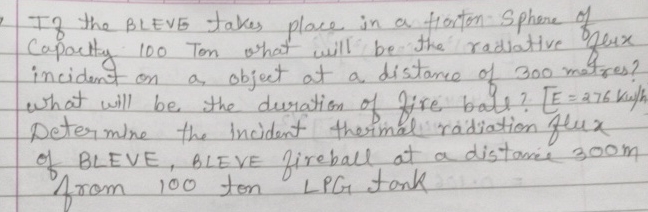 If the BLEVE takes place in a Horton Sphere of
Capacity 100 Ton what will be the radiative flux
incident on a object at a distance of 300 metres?
what will be the duration of fire ball? [E = 276 kW/
Determine the Incident thermal radiation flux
of BLEVE, BLEVE fireball at a distance 300m
from 100 ton LPG tank